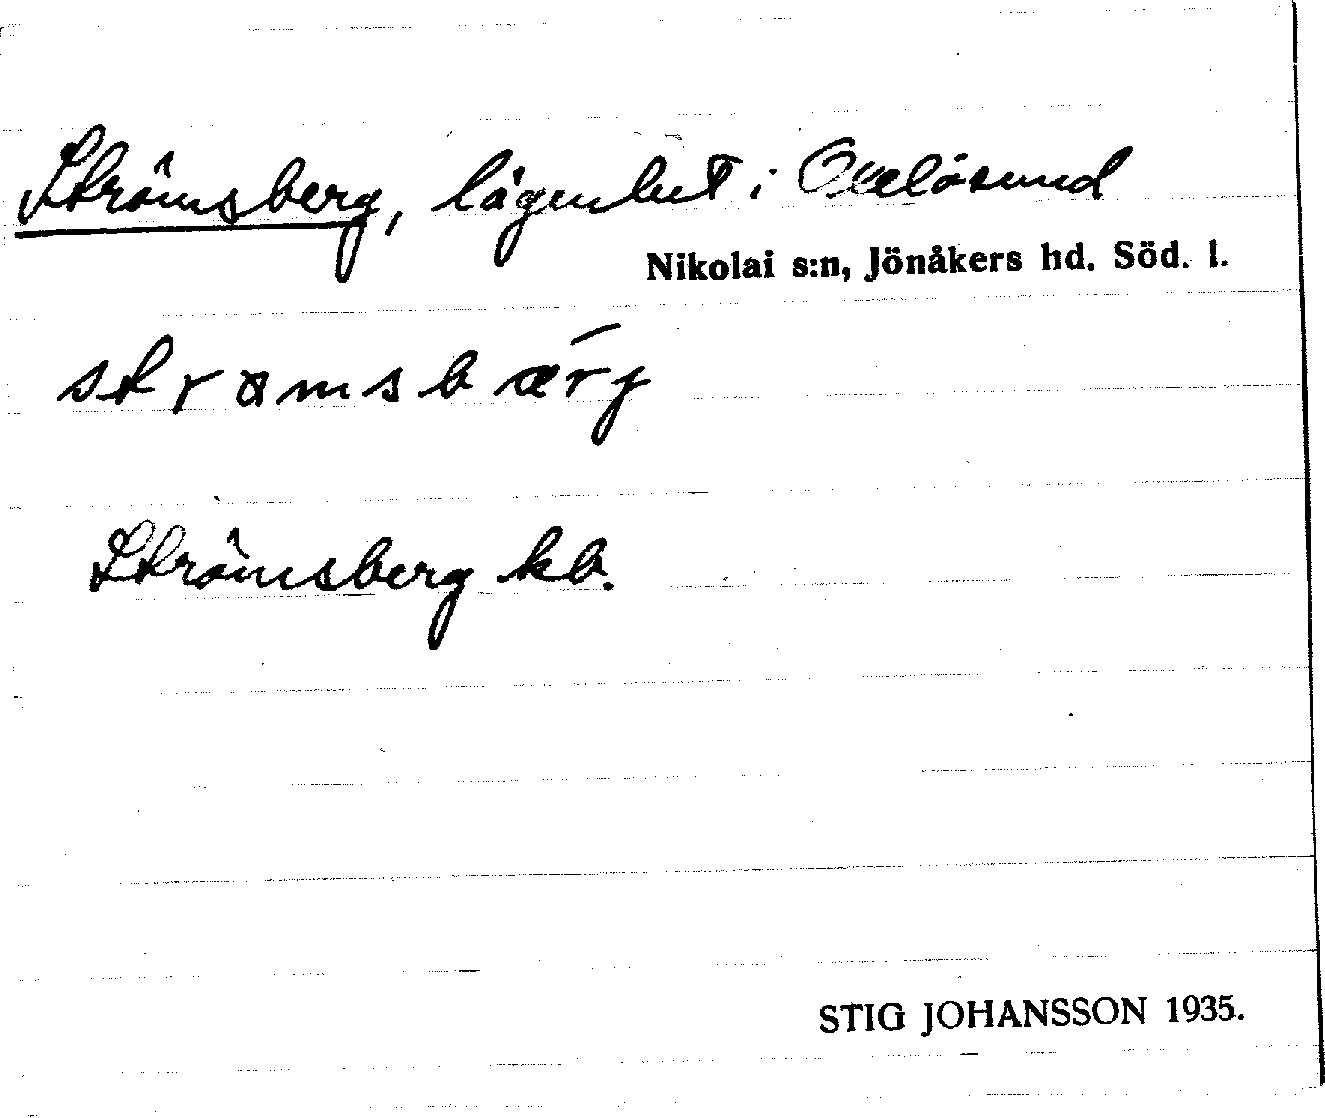 Strömsberg, lägenhet i Oxelösund
Nikolai s:n, Jönåkers hd. Söd. l.
strömsbærj
Strömsberg kb.
STIG JOHANSSON 1935.